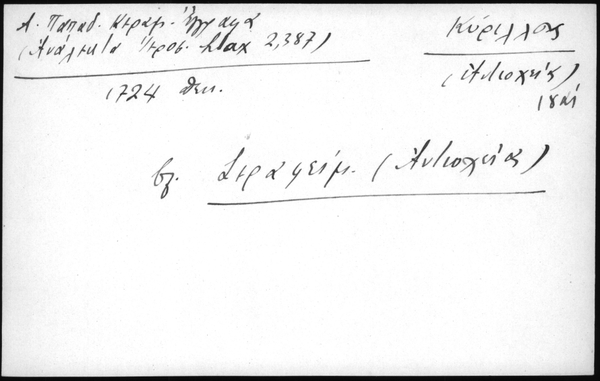 Α. Παπαδ. Κεραμ. Ἔγγραφα
(Ἀνάλεκτα Ἱεροσ. Σταχ 2,387)
Κύριλλος
(Ἀντιοχείας)
18αἰ
1724 Δεκ.
βλ. Σεραφείμ. (Ἀντιοχείας)